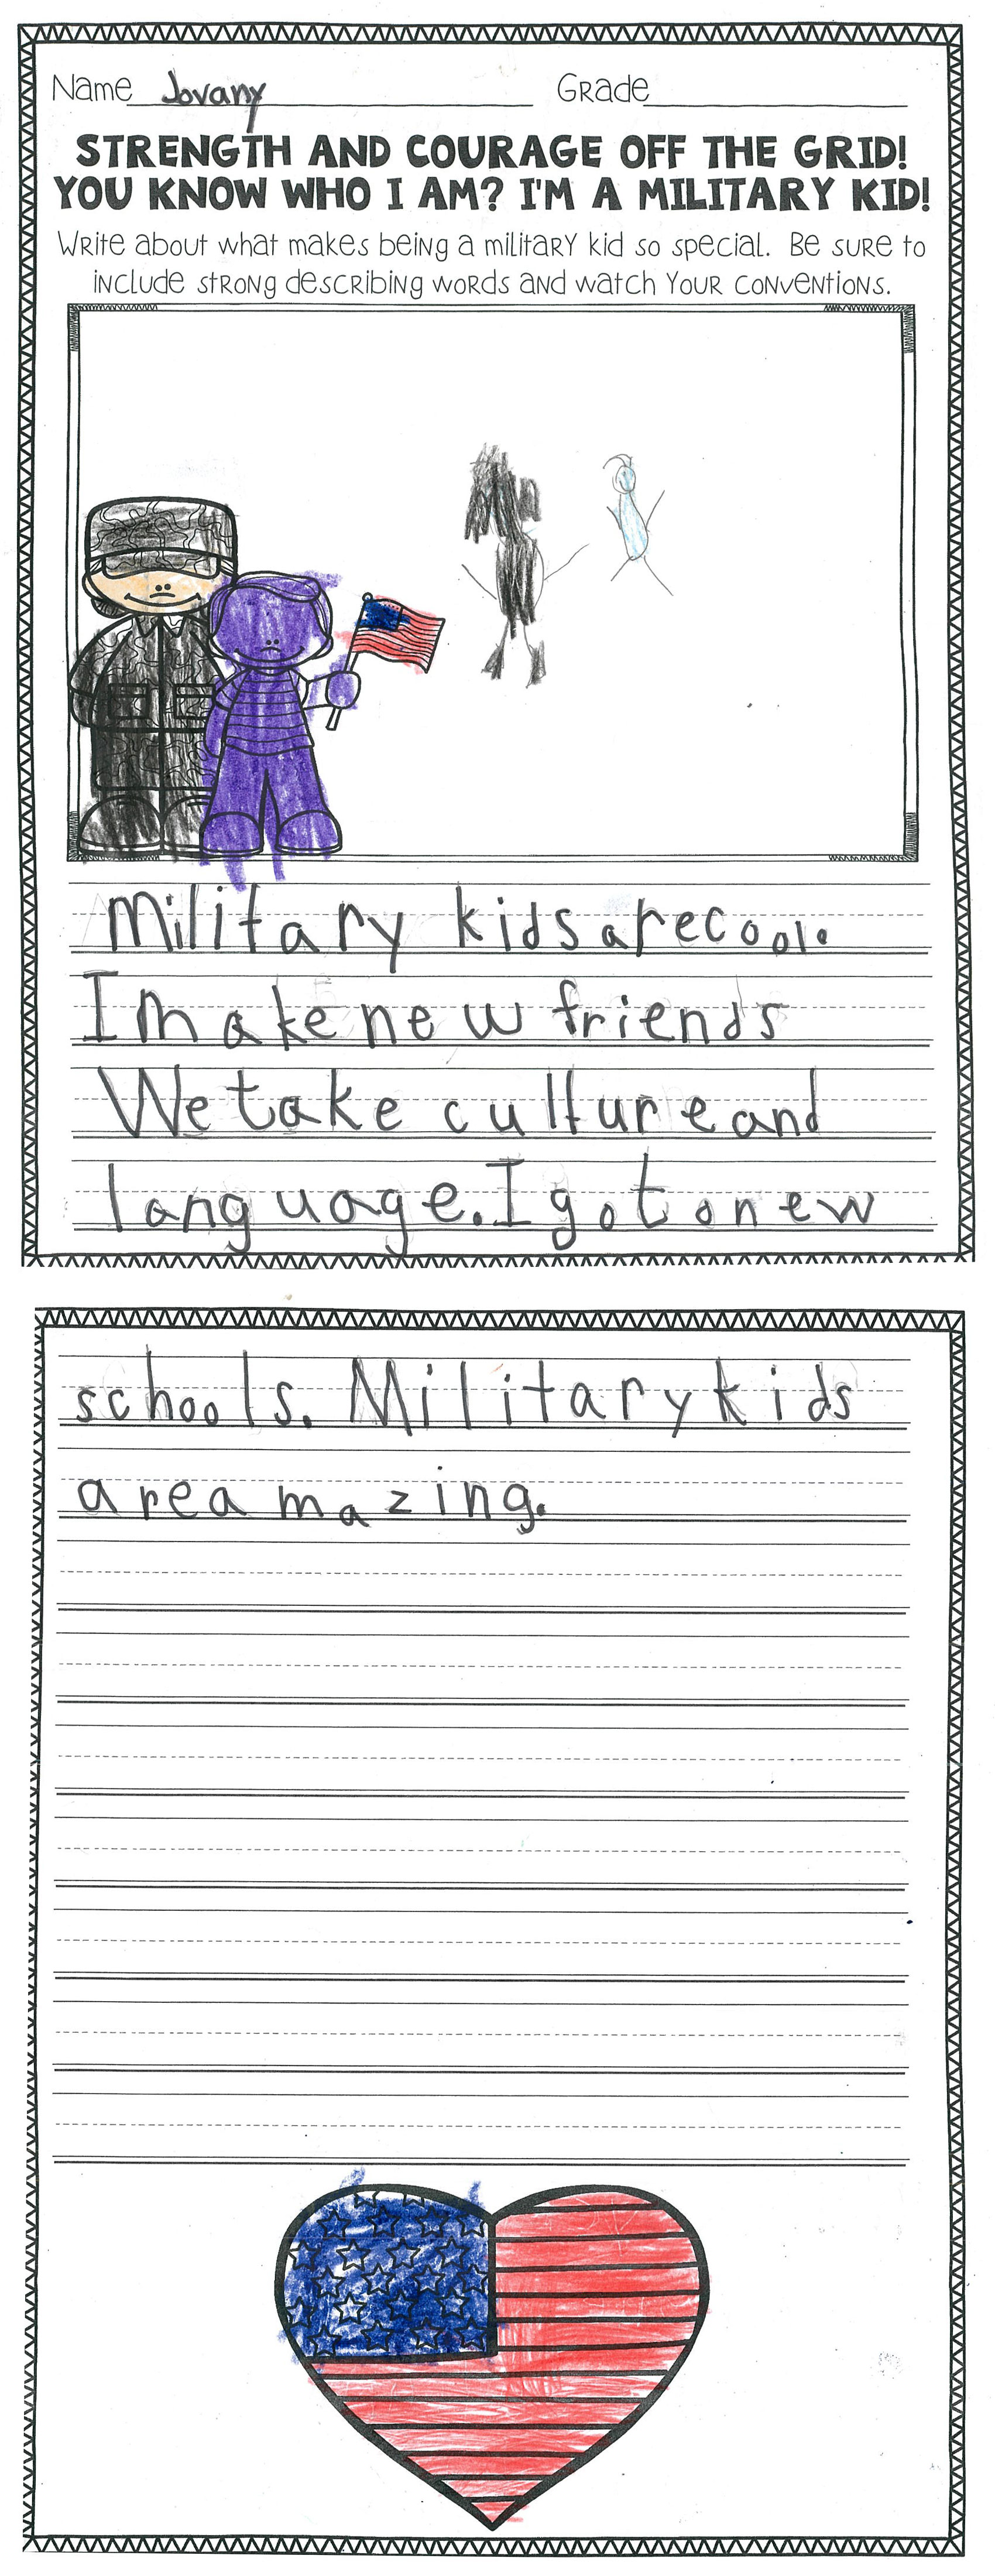 Name Jovany Grade
STRENGTH AND COURAGE OFF THE GRID!
YOU KNOW WHO I AM? I'M A MILITARY KID!
Write about what makes being a military kid so special. Be sure to
include strong describing words and watch your conventions.
Military kids are cool.
I make new friends
We take culture and
language. I got o new
schools. Military kids
are amazing.